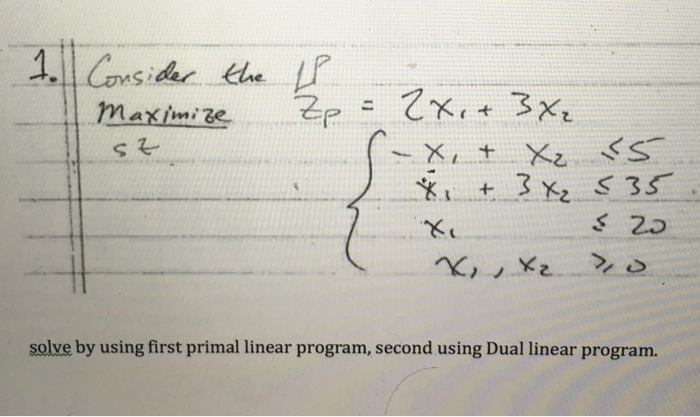 1. Consider the LP
Maximize Zp = 2x₁ + 3x₂
st
- x₁ + x₂ ≤ 5
x₁ + 3x₂ ≤ 35
x₁ ≤ 20
x₁, x₂ ≥ 0
solve by using first primal linear program, second using Dual linear program.